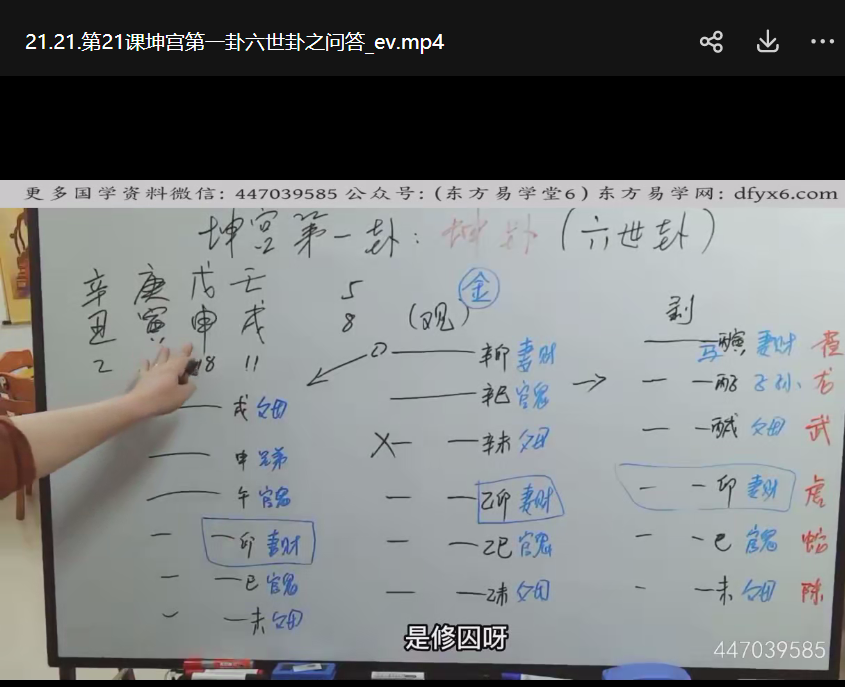 21.21.第21课坤宫第一卦六世卦之问答_ev.mp4
更多国学资料微信：447039585 公众号：(东方易学堂6) 东方易学网：dfyx6.com
坤宫第一卦：坤卦（六世卦）
辛 庚 戊 壬 5
丑 寅 申 戌 8
2 18 11
（观） 金 剥
辛卯 妻财 寅 妻财 雀
辛巳 官鬼 子孙 龙
戌 父母 辛未 父母 戌 父母 武
申 兄弟
午 官鬼 乙卯 妻财 卯 妻财 虎
卯 妻财 乙巳 官鬼 巳 官鬼 蛇
巳 官鬼 乙未 父母 未 父母 陈
未 父母
是修囚呀
447039585